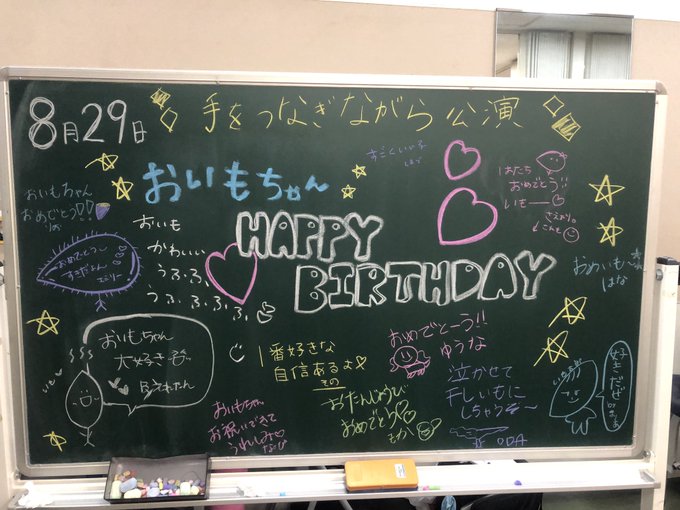 8月29日
手をつなぎながら公演
おいもちゃん
HAPPY
BIRTHDAY
おいもちゃん
おめでとう!!
おめでとう〜
すきだよん
エミリー
おいも
かわいい
うふふ、
うふ、ふ、ふ、
はたち
おめでとう!!
いも
おめいも〜
はな
おいもちゃん
大好き
1番好きな
自信あるよ
その
おたんじょうび
おめでとう
もか
おめでとーう!!
ゆうな
おいもちゃん
お祝いできて
うれしみ
なるぴ
泣かせて
干しいもに
しちゃうぞ〜
ODA
好きだぜ